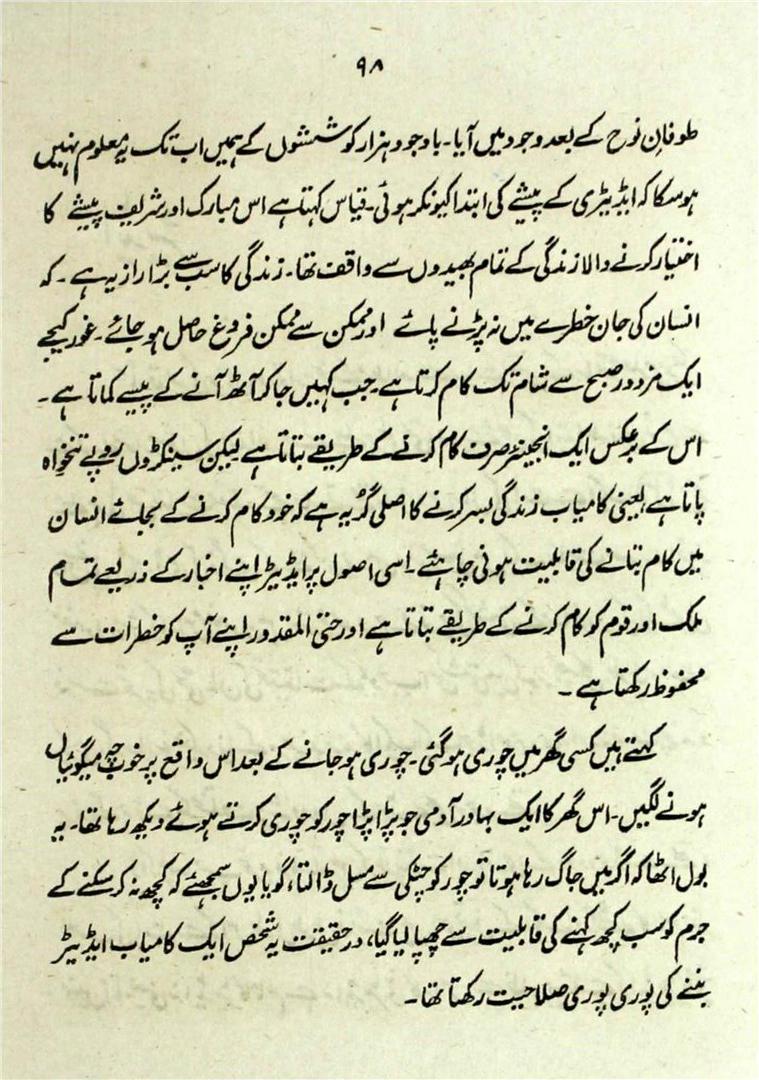 ۹۸
طوفانِ نوح کے بعد وجود میں آیا۔ باوجود ہزار کوششوں کے ہمیں اب تک یہ معلوم نہیں
ہو سکا کہ ایڈیٹری کے پیشے کی ابتدا کیونکر ہوئی۔ قیاس کہتا ہے اس مبارک اور شریف پیشے کا
اختیار کرنے والا زندگی کے تمام بھیدوں سے واقف تھا۔ زندگی کا سب سے بڑا راز یہ ہے۔ کہ
انسان کی جان خطرے میں نہ پڑنے پائے اور ممکن سے ممکن فروغ حاصل ہو جائے۔ غور کیجے
ایک مزدور صبح سے شام تک کام کرتا ہے۔ جب کہیں جا کر آٹھ آنے کے پیسے کماتا ہے۔
اس کے برعکس ایک انجینئر صرف کام کرنے کے طریقے بتاتا ہے لیکن سینکڑوں روپے تنخواہ
پاتا ہے۔ یعنی کامیاب زندگی بسر کرنے کا اصلی گُر یہ ہے کہ خود کام کرنے کے بجائے انسان
میں کام بتانے کی قابلیت ہونی چاہئے۔ اسی اصول پر ایڈیٹر اپنے اخبار کے ذریعے تمام
ملک اور قوم کو کام کرنے کے طریقے بتاتا ہے اور حتیٰ المقدور اپنے آپ کو خطرات سے
محفوظ رکھتا ہے۔
کہتے ہیں کسی گھر میں چوری ہو گئی۔ چوری ہو جانے کے بعد اس واقع پر خوب چہ میگوئیاں
ہونے لگیں۔ اس گھر کا ایک بہادر آدمی جو پڑا پڑا چور کو چوری کرتے ہوئے دیکھ رہا تھا۔ یہ
بول اٹھا کہ اگر میں جاگ رہا ہوتا تو چور کو چٹکی سے مسل ڈالتا، گویا یوں سمجھئے کہ کچھ نہ کر سکنے کے
جرم کو سب کچھ کہنے کی قابلیت سے چھپا لیا گیا، درحقیقت یہ شخص ایک کامیاب ایڈیٹر
بننے کی پوری پوری صلاحیت رکھتا تھا۔